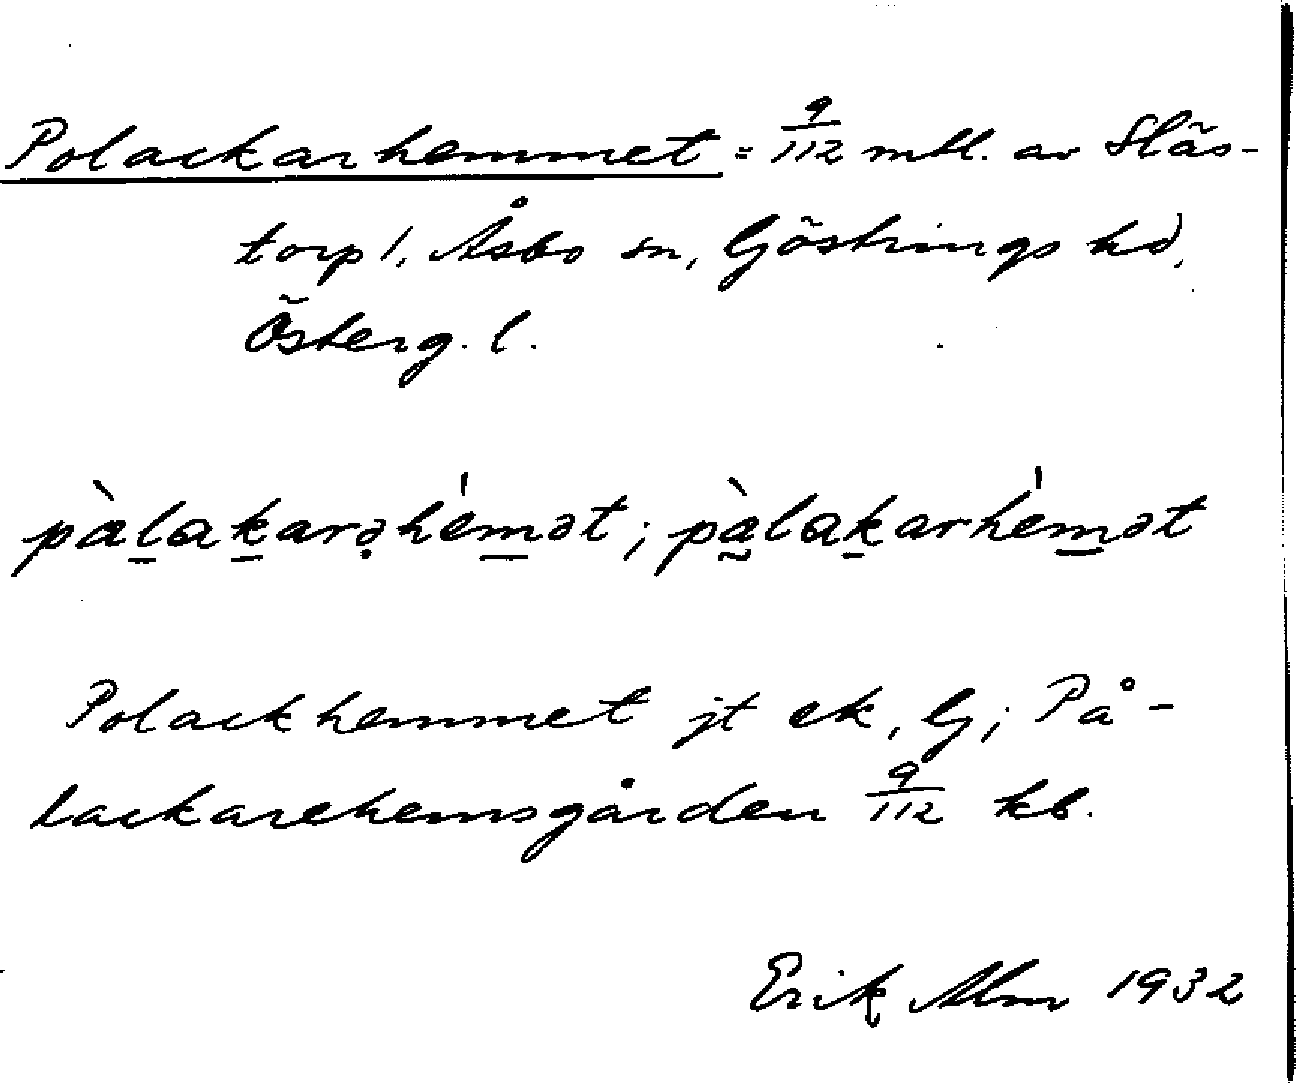 Polackarhemmet = 9/112 mtl. av Släs-
torp 1, Åsbo sn, Göstrings hd,
Österg. l.
pàl̲ak̲arə̣hém̲ət; pà̰lak̲arhém̲ət
Polackhemmet jt ek, G; På-
lackarehemsgården 9/112 kb.
Erik Alm 1932